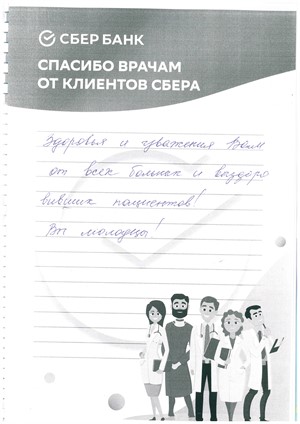 СБЕР БАНК
СПАСИБО ВРАЧАМ
ОТ КЛИЕНТОВ СБЕРА
Здоровья и уважения Вам
от всех больных и выздоро
вивших пациентов!
Вы молодцы!